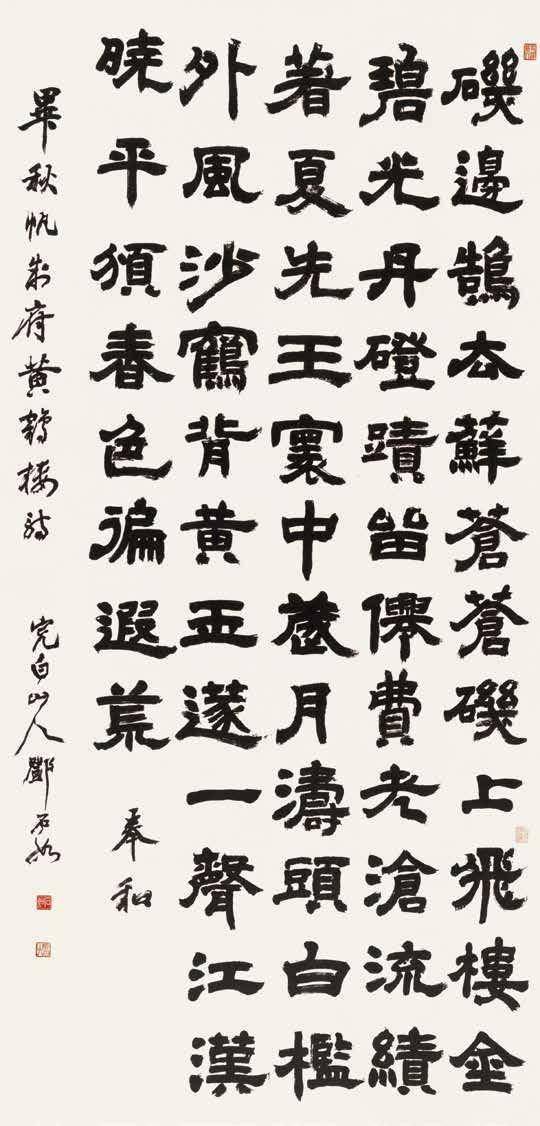 磯邊鵠去蘚蒼蒼磯上飛樓金
碧光丹磴蹟留僊費老滄流績
著夏先王寰中月濤頭白檻
外風沙鶴背黃玉邃一聲江漢
曉平頒春色徧遐荒 奉和
畢秋帆制府黃鶴樓詩 完白山人鄧石如